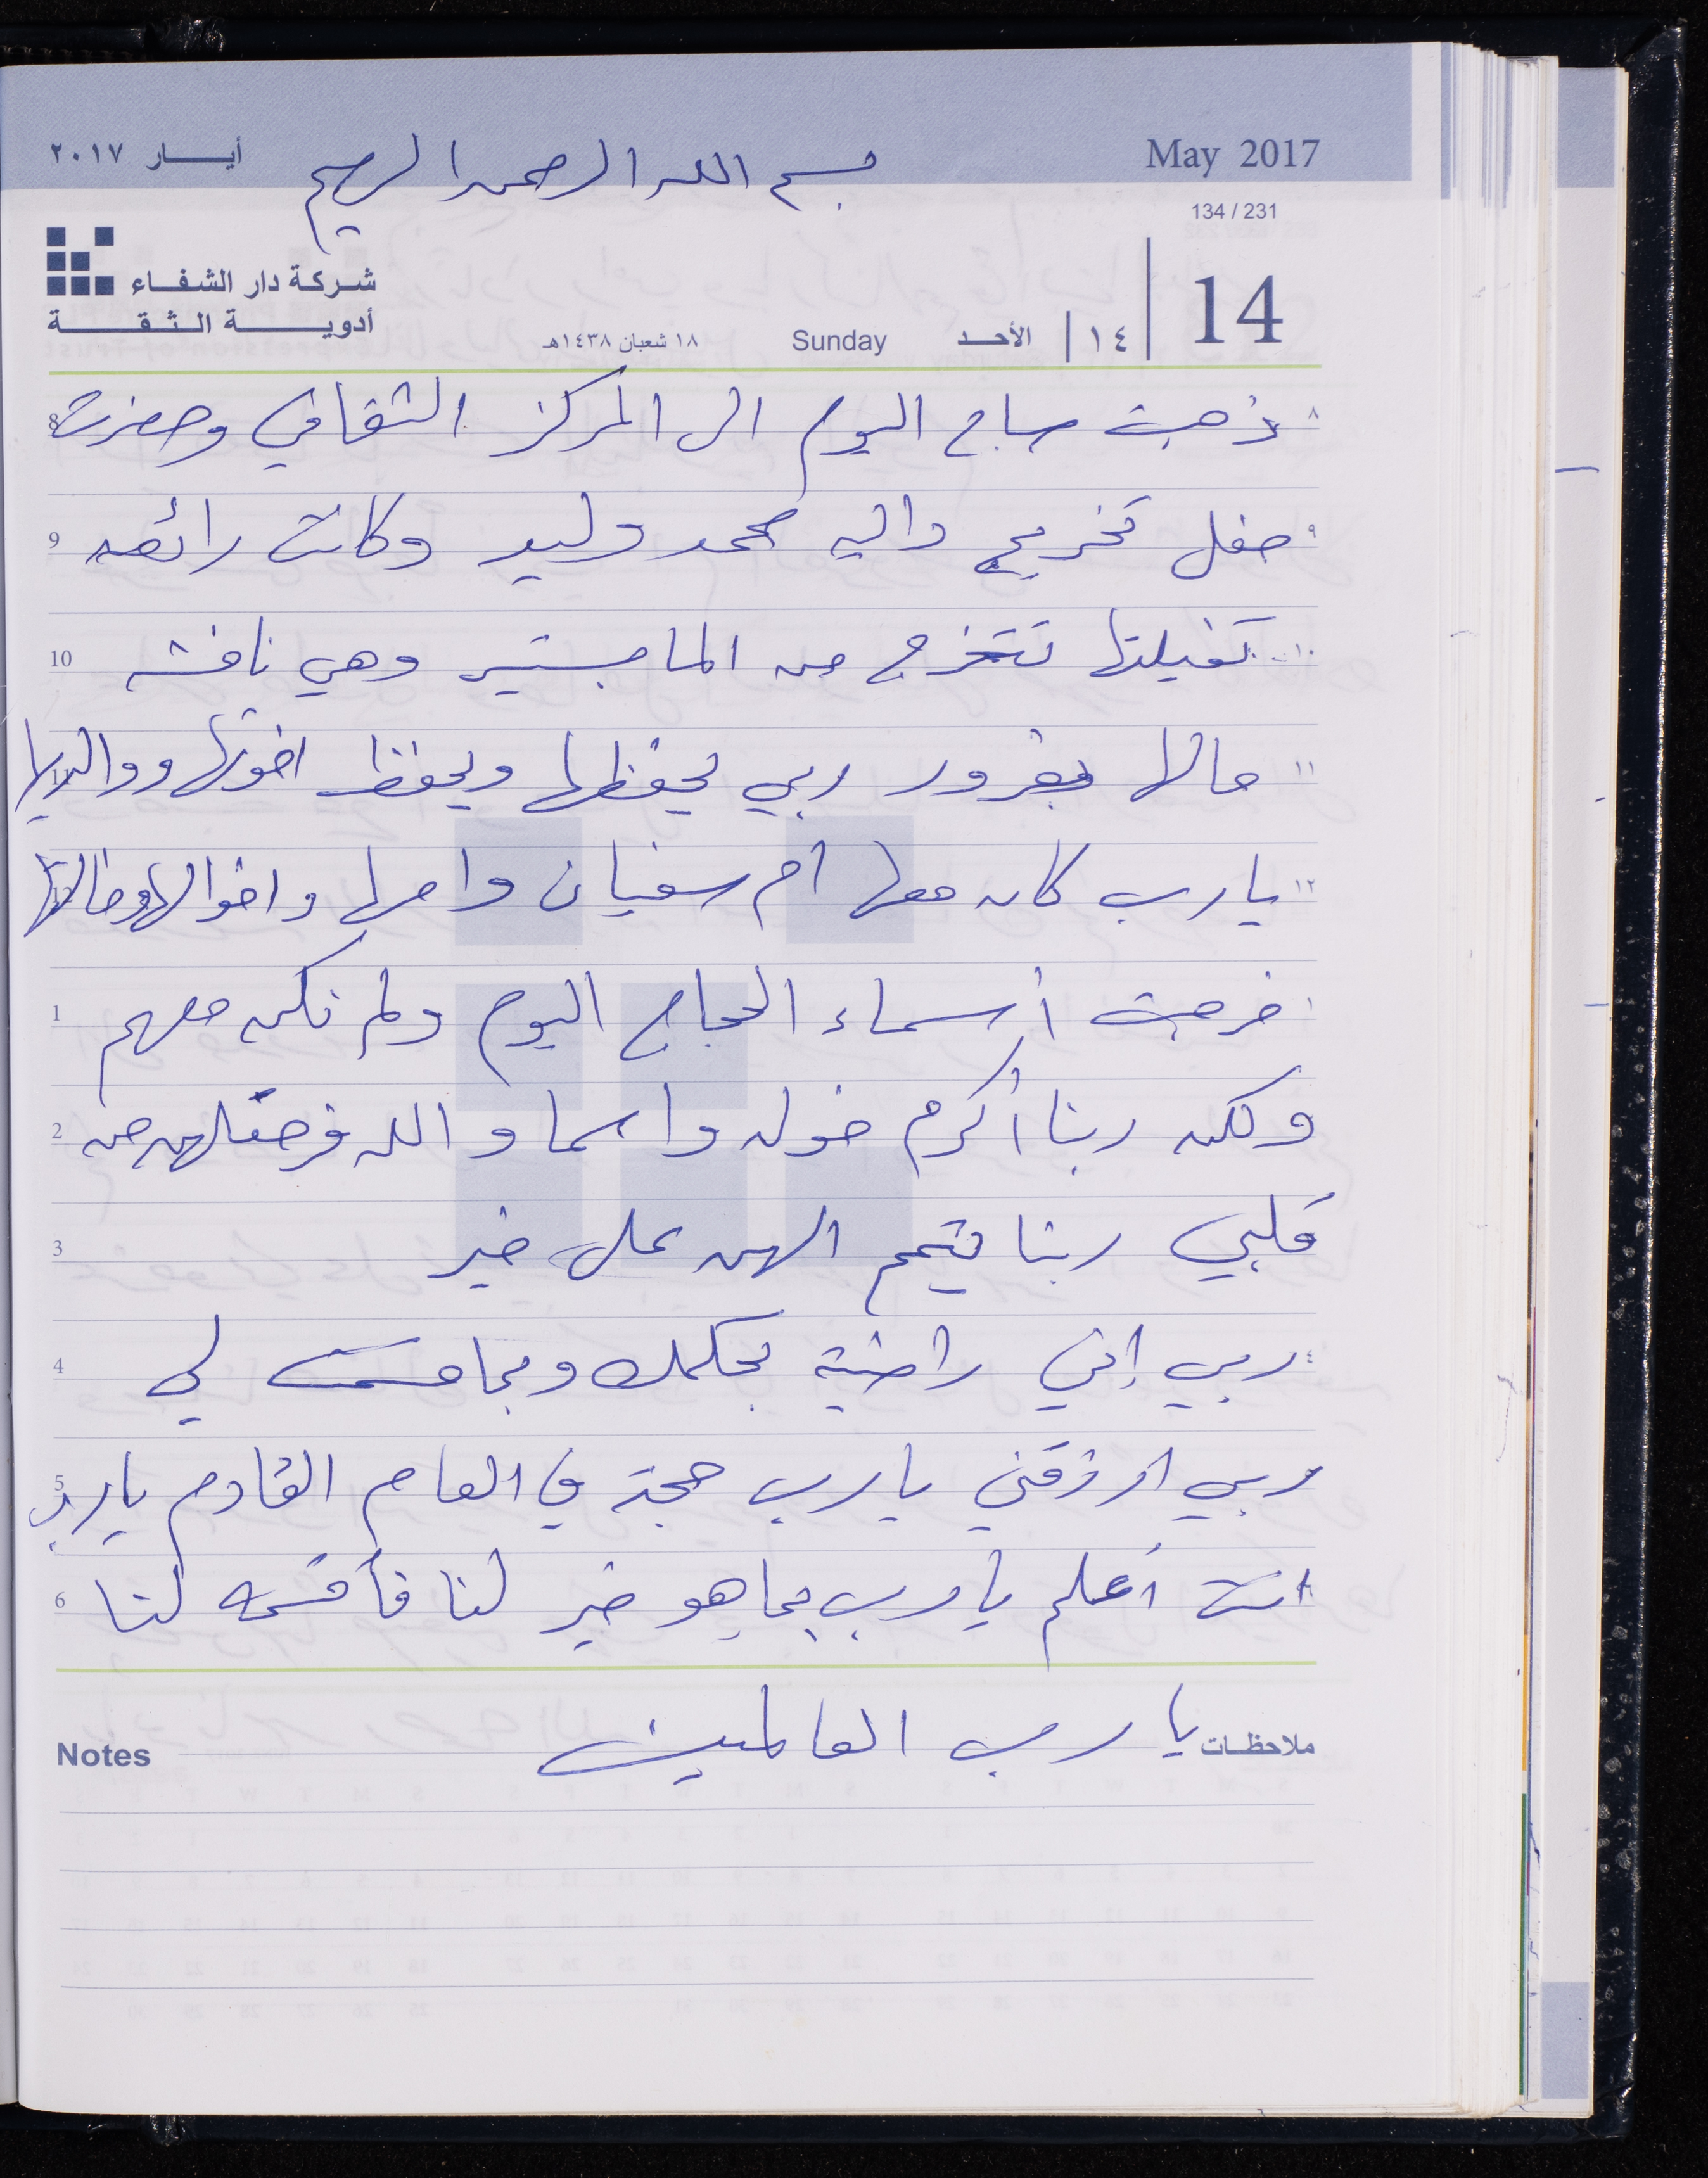 أيـــار ٢٠١٧
بسم الله الرحمن الرحيم
May 2017
134 / 231
شركة دار الشفاء
أدويــة الـثـقــة
14
١٤
الأحد
Sunday
١٨ شعبان ١٤٣٨هـ
٨ ذهبت صباح اليوم الى المركز الثقافي وحضرت 8
٩ حفل تخريج داليه محمد وليد وكانت رائعه 9
١٠ تخيلتها تتخرج من الماجستير وهي نافشه 10
١١ حالها بغرور ربي يحفظها ويحفظ اخوتها ووالديها 11
١٢ يارب كان معها أم سفيان واهلها واخوالها وخالاتها 12
١ خرجت أسماء الحجاج اليوم ولم نكن معهم 1
ولكن ربنا أكرم خوله واسما والله فرحتلهن من 2
قلبي ربنا يتمم الهن على خير 3
٤ ربي إني راضية بحكمك وبما قسمت لي 4
ربي ارزقني يارب حجة في العام القادم يارب 5
انت أعلم يارب بما هو خير لنا فأقسمه لنا 6
ملاحظـات يارب العالمين Notes